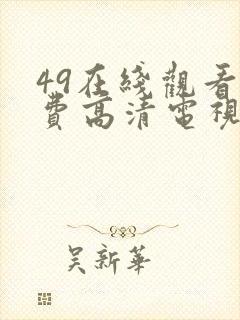 49在綫觀看
費高清電視
吳新華